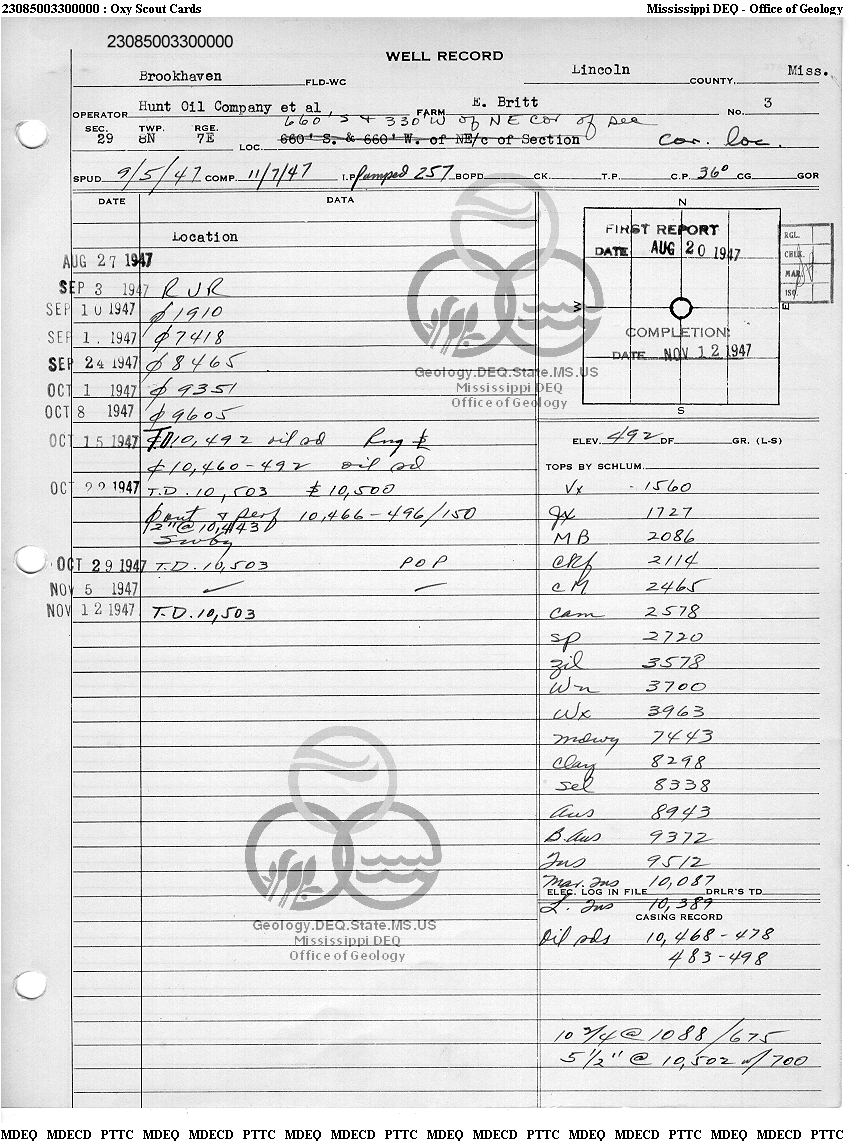 23085003300000 : Oxy Scout Cards Mississippi DEQ - Office of Geology
23085003300000
WELL RECORD
Brookhaven FLD-WC Lincoln COUNTY, Miss.
OPERATOR Hunt Oil Company et al FARM E. Britt No. 3
660' S & 330' W of NE cor of sec
SEC. 29 TWP. 8N RGE. 7E LOC. 660' S. & 660' W. of NE/c of Section cor. loc.
SPUD 9/5/47 COMP. 11/7/47 I.P. Pumped 257 BOPD CK. T.P. C.P. 36° CG. GOR
DATE DATA
Location
AUG 27 1947
SEP 3 1947 RUR
SEP 10 1947 1910
SEP 1. 1947 7418
SEP 24 1947 8465
OCT 1 1947 9351
OCT 8 1947 9605
OCT 15 1947 TD 10,492 oil sd Rng
10,460-492 oil sd
OCT 22 1947 T.D. 10,503 10,500
& perf 10,466-496/150
2" @ 10,443
OCT 29 1947 T.D. 10,503 POP
NOV 5 1947
NOV 12 1947 T.D. 10,503
N
FIRST REPORT
DATE AUG 20 1947
W E
COMPLETION:
DATE NOV 12 1947
S
RGL.
CHLK.
MAP
ISO.
ELEV. 492 DF. GR. (L-S)
TOPS BY SCHLUM.
Vx 1560
Jx 1727
MB 2086
CRf 2114
CM 2465
Cam 2578
Sp 2720
Zil 3578
Wn 3700
Wx 3963
Mdwy 7443
Clay 8298
Sel 8338
Aus 8943
B. Aus 9372
Tus 9512
Mar. Tus 10,087
ELEC. LOG IN FILE DRLR'S TD
L. Tus 10,389
CASING RECORD
Oil sds 10,468-478
483-498
10 3/4 @ 1088/675
5 1/2" @ 10,502 w/700
Geology.DEQ.State.MS.US
Mississippi DEQ
Office of Geology
Geology.DEQ.State.MS.US
Mississippi DEQ
Office of Geology
MDEQ MDECD PTTC MDEQ MDECD PTTC MDEQ MDECD PTTC MDEQ MDECD PTTC MDEQ MDECD PTTC MDEQ MDECD PTTC